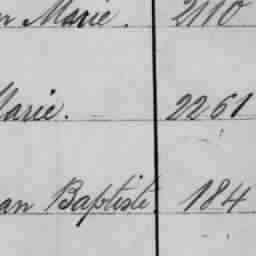 Marie. 2110
Marie. 2261
an Baptiste. 184